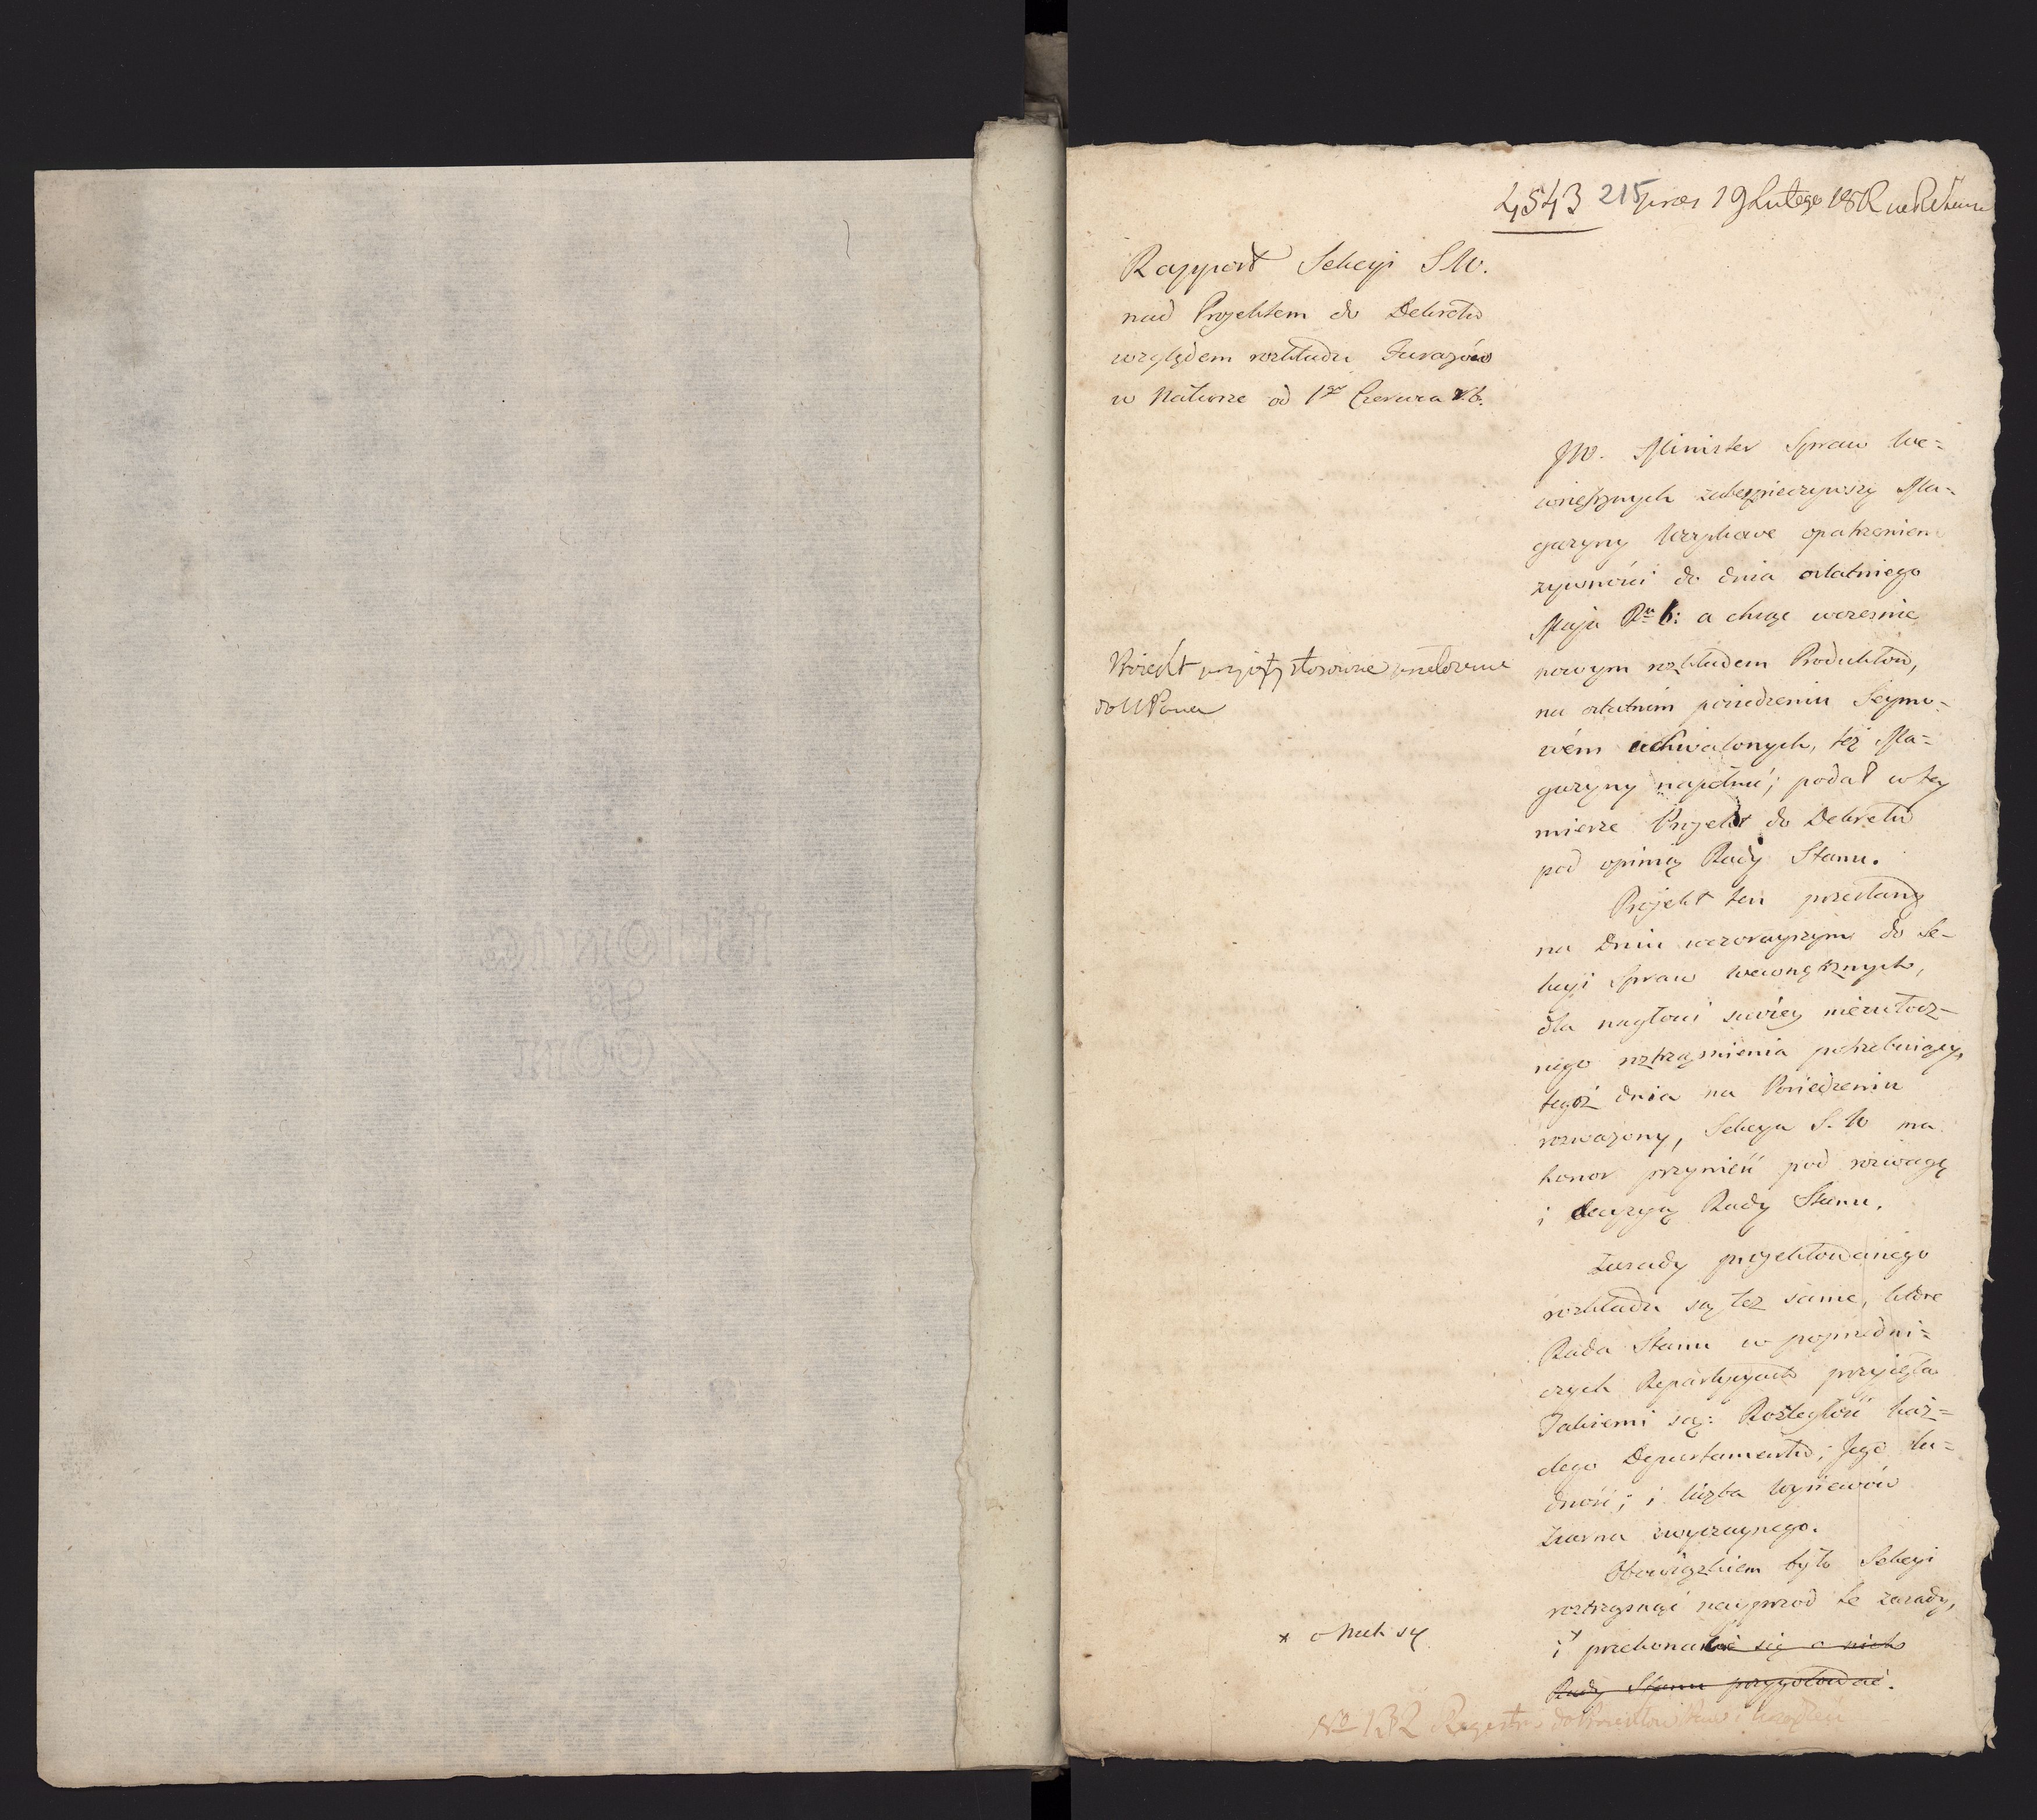 4543 215 præs 19 Lutego 1812
Rapport Sekcyi S W.
nad Projektem do Dekretu
względem rozkładu Furażów
w Naturze od 1go Czerwca r.b.
JW. Minister Spraw We=
wnętrznych zabezpieczywszy Ma-
gazyny Woyskowe opatrzeniem
żywności do dnia ostatniego
Maja Ru b: a chcąc wcześnie
nowym rozkładem Produktów,
na ostatnim posiedzeniu Seymo-
wém uchwalonych, też Ma=
gazyny napełnić; podał w tey
mierze Projekt do Dekretu
pod opinią Rady Stanu.
Projekt przyjęty stosowne przełożenie
do N Pana
Projekt ten przesłany
na Dniu wczorayszym do Se-
kcyi Spraw Wewnętrznych,
dla nagłości swoiey niezwłocz-
nego roztrząśnienia potrzebuiący,
tegoż dnia na Posiedzeniu
rozważony, Sekcya S. W ma
honor przynieść pod rozwagę
i decyzyą Rady Stanu.
Zasady projektowanego
rozkładu są też same, które
Rada Stanu w poprzedni=
czych Repartycyach przyięła
Takiemi są: Rozległość każ=
dego Departamentu; Jego lu=
dność; i liczba Wysiewów
Ziarna zwyczaynego.
Obowiązkiem było Sekcyi
roztrząsnąć nayprzod te zasady,
i x przekonanie się o nich
Rady Stanu przygotować.
x o nich są
No 132 Regestru do Projektów Praw i Urządzeń